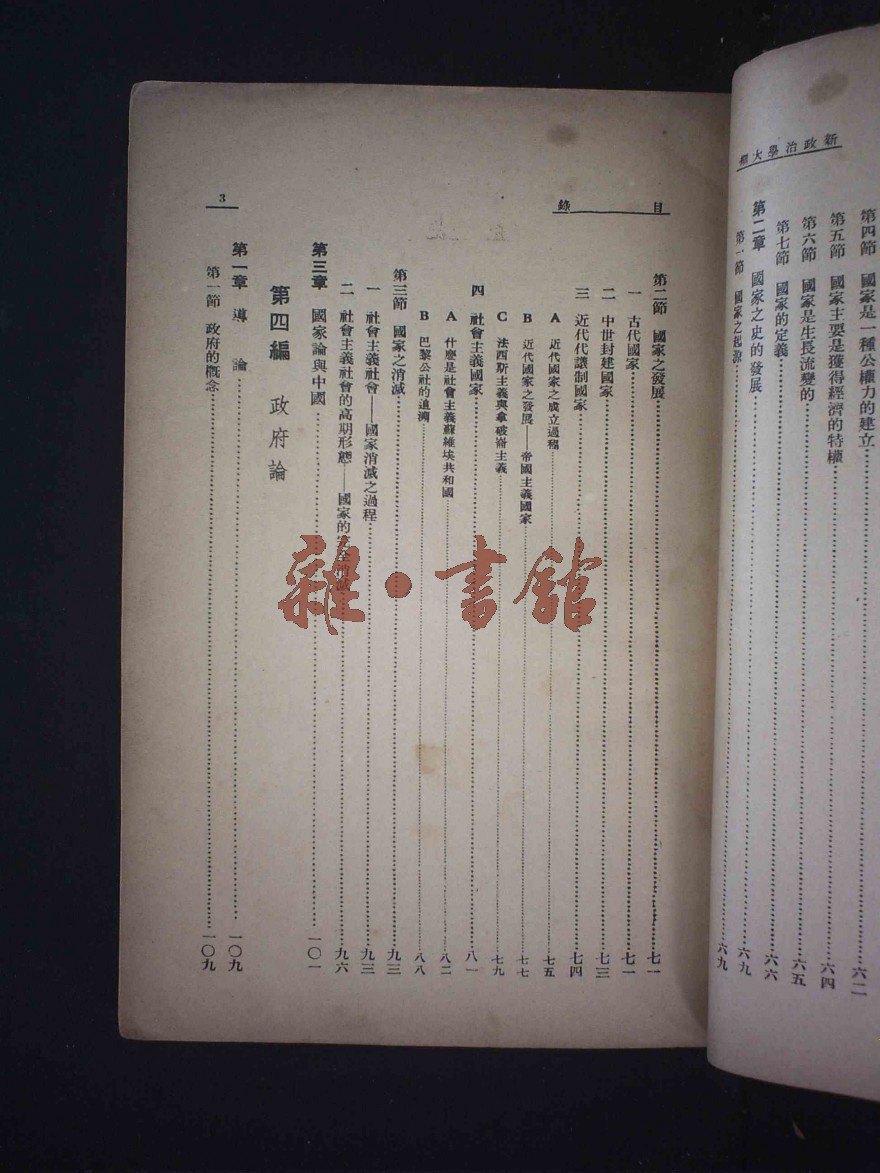 新政治學大
第四節 國家是一種公權力的建立……六二
第五節 國家主要是獲得經濟的特權……六四
第六節 國家是生長流變的……六五
第七節 國家的定義……六六
第二章 國家之史的發展……六九
第一節 國家之起源……六九
目錄
第二節 國家之發展……七一
一 古代國家……七一
二 中世封建國家……七三
三 近代代議制國家……七四
A 近代國家之成立過程……七五
B 近代國家之發展——帝國主義國家……七七
C 法西斯主義與拿破崙主義……七九
四 社會主義國家……八一
A 什麼是社會主義蘇維埃共和國……八二
B 巴黎公社的追溯……八八
第三節 國家之消滅……九三
一 社會主義社會——國家消滅之過程……九三
二 社會主義社會的高期形態——國家的完全消滅……九六
第三章 國家論與中國……一〇一
第四編 政府論
第一章 導論……一〇九
第一節 政府的概念……一〇九
3
雜·書館